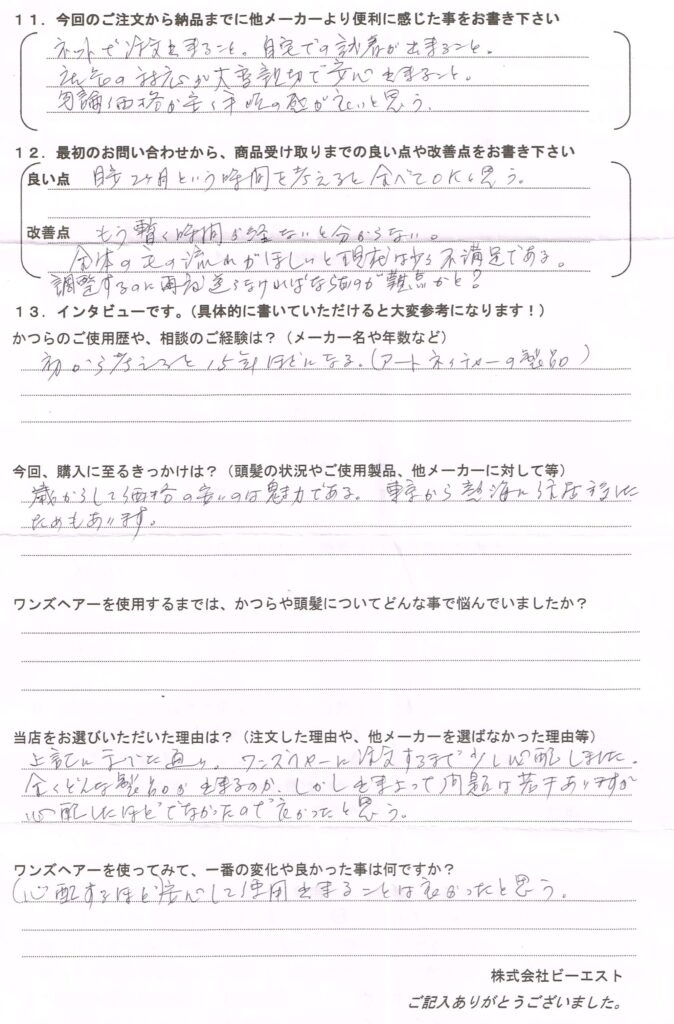 11．今回のご注文から納品までに他メーカーより便利に感じた事をお書き下さい
ネットで注文出来ること。自宅での試着が出来ること。
の対応が大変親切で安心出来ること。
勿論価格が安く の感が良いと思う。
12．最初のお問い合わせから、商品受け取りまでの良い点や改善点をお書き下さい
良い点 2ヶ月という時間を考えると全べてOKと思う。
改善点 もう暫く時間が経ないと分からない。
全体の毛の流れがほしいと現在は少々不満足である。
調整するのに再初送らなければならぬのが難点かと？
13．インタビューです。（具体的に書いていただけると大変参考になります！）
かつらのご使用歴や、相談のご経験は？（メーカー名や年数など）
初から考えると15年ほどになる。（アートネイチャーの製品）
今回、購入に至るきっかけは？（頭髪の状況やご使用製品、他メーカーに対して等）
歳からして価格の安いのは魅力である。東京から熱海に した
ためもあります。
ワンズヘアーを使用するまでは、かつらや頭髪についてどんな事で悩んでいましたか？
当店をお選びいただいた理由は？（注文した理由や、他メーカーを選ばなかった理由等）
上記に述べた通り。ワンズヘヤーに注文するまで少し心配しました。
全くどんな製品が出来るのか、しかし出来上って問題は若干ありますが
心配したほどでなかったので良かったと思う。
ワンズヘアーを使ってみて、一番の変化や良かった事は何ですか？
（心配するほど）安心して使用出来ることは良かったと思う。
株式会社ビーエスト
ご記入ありがとうございました。